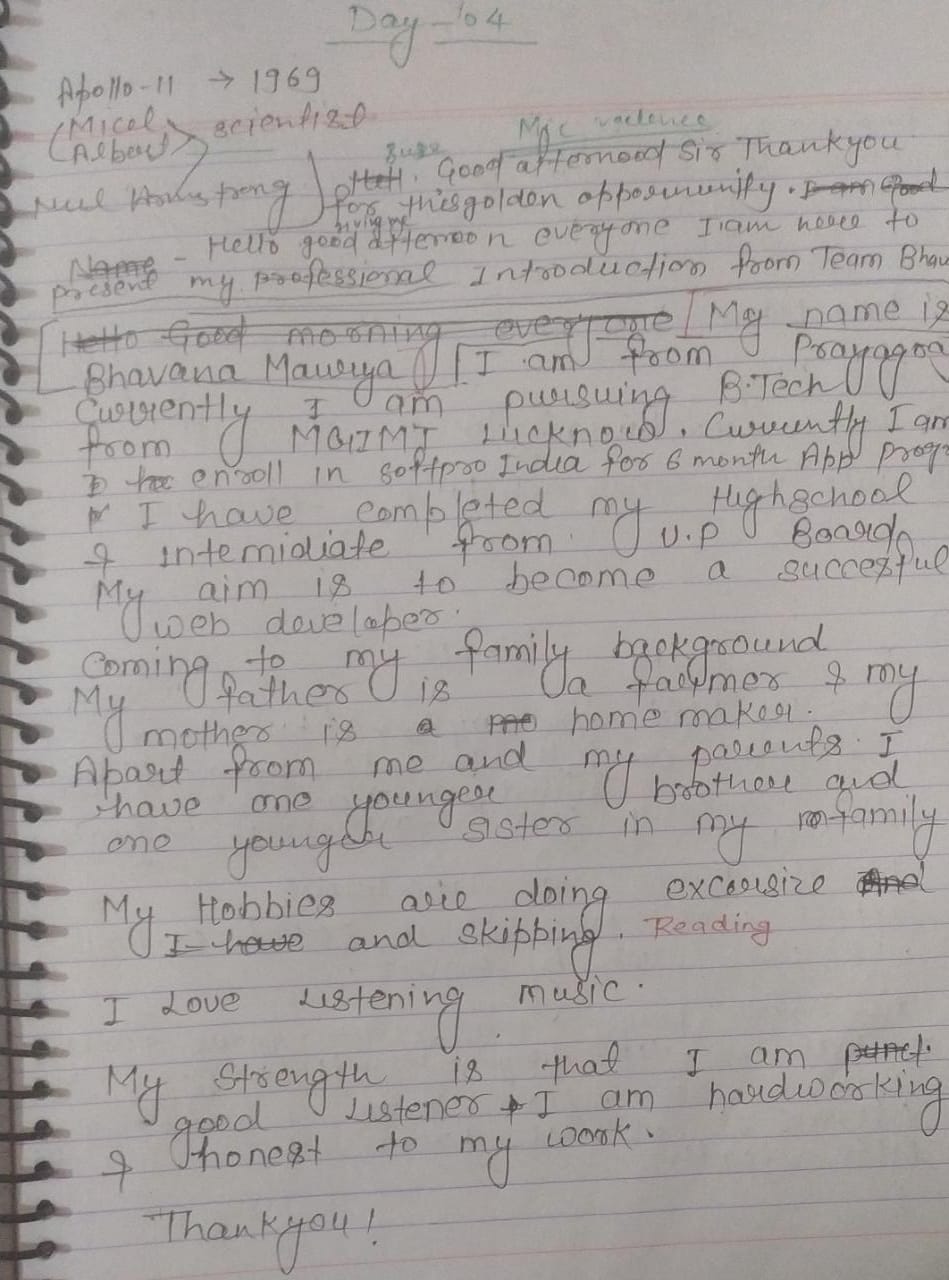 Day - 04
Apollo-11 → 1969
(Mical
(Albert > scientist
Neil Armstrong
Good afternood Sir Thankyou
for this golden opporunity. I am Good
giving me
Name - Hello good afternoon everyone I am here to
present my professional Introduction from Team Bhav
Hello Good morning everyone My name is
Bhavana Maurya I am from Prayagra
Currently I am pursuing B.Tech
from MGIMT Lucknow. Currently I am
enroll in softpro India for 6 month App Prog
I have completed my Highschool
& intemidiate from U.P Board
My aim is to become a succesful
web developer.
Coming to my family background
My father is a farmer & my
mother is a home maker.
Apart from me and my parents I
have one younger brother and
one younger sister in my family
My Hobbies are doing excersize And
I have and skipping. Reading
I Love Listening music.
My Strength is that I am punct.
good Listener + I am hardworking
& honest to my work.
Thankyou!